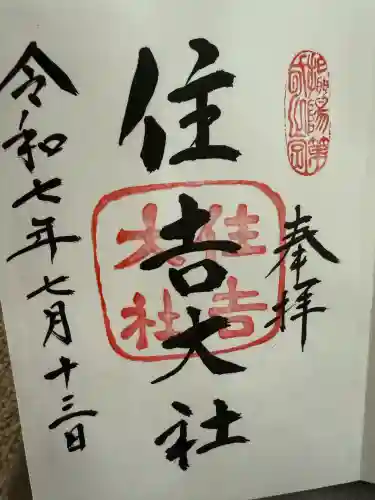 奉拝
住吉大社
住吉
大社
令和七年七月十三日